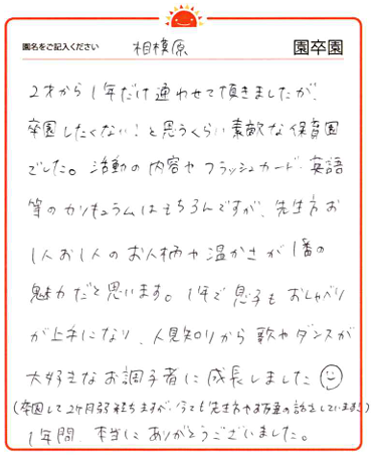 園名をご記入ください 相模原 園卒園
2才から1年だけ通わせて頂きましたが、
卒園したくない!と思うくらい素敵な保育園
でした。活動の内容やフラッシュカード・英語
等のカリキュラムはもちろんですが、先生方お
1人お1人のお人柄や温かさが1番の
魅力だと思います。1年で息子もおしゃべり
が上手になり、人見知りから歌やダンスが
大好きなお調子者に成長しました
(卒園して2ヶ月弱経ちますが、今でも先生方やお友達の話をしています!)
1年間、本当にありがとうございました。